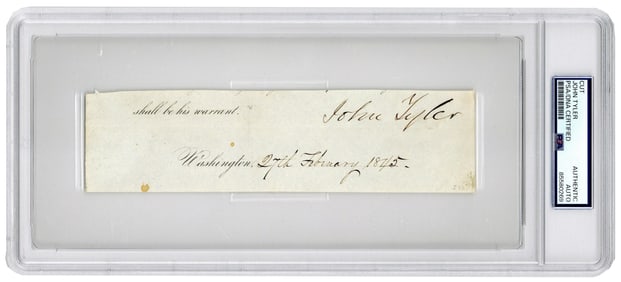 shall be his warrant.
John Tyler
Washington, 27th February 1845.
CUT
JOHN TYLER
PSA/DNA CERTIFIED
PSA
AUTHENTIC
AUTO
85580269